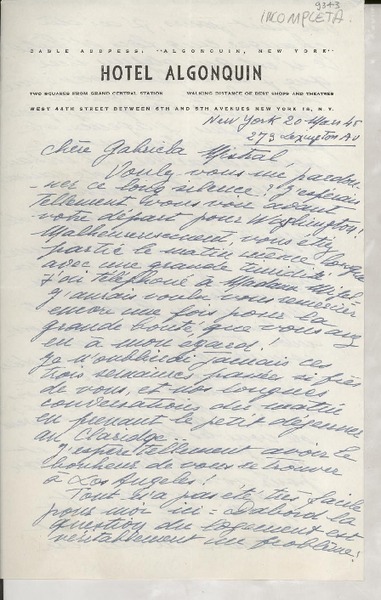 9343
INCOMPLETA.
CABLE ADDRESS: "ALGONQUIN, NEW YORK"
HOTEL ALGONQUIN
TWO SQUARES FROM GRAND CENTRAL STATION WALKING DISTANCE OF BEST SHOPS AND THEATRES
WEST 44TH STREET BETWEEN 5TH AND 6TH AVENUES NEW YORK 18, N. Y.
New York 20 Mars 46
273 Lexington Av
Chère Gabriela Mistral,
Voulez vous me pardon-
-ner ce long silence? J'espérais
tellement vous voir avant
votre départ pour Washington!
Malheureusement, vous étiez
partie le matin même lorsque
avec une grande
j'ai téléphoné à Madame
J'aurais voulu vous remercier
encore une fois pour la
grande bonté, que vous avez
eu à mon égard!
Je n'oublierai jamais ces
trois semaines passées si près
de vous, et nos longues
conversations du matin
en prenant le petit dejeuner
au Claridge.
J'espère tellement avoir le
bonheur de vous retrouver
à Los Angeles!
Tout n'a pas été très facile
pour moi ici = D'abord la
question du logement est
véritablement un problème!